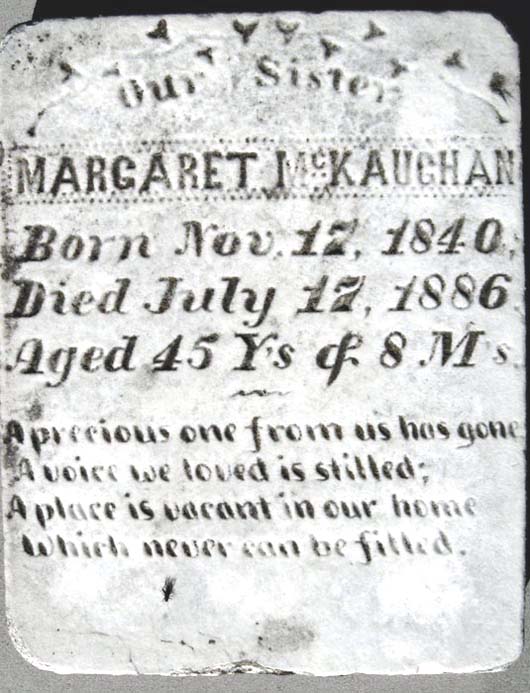 Our Sister
MARGARET McKAUGHAN
Born Nov. 17, 1840,
Died July 17, 1886
Aged 45 Y's & 8 M's
A precious one from us has gone
A voice we loved is stilled;
A place is vacant in our home
Which never can be filled.